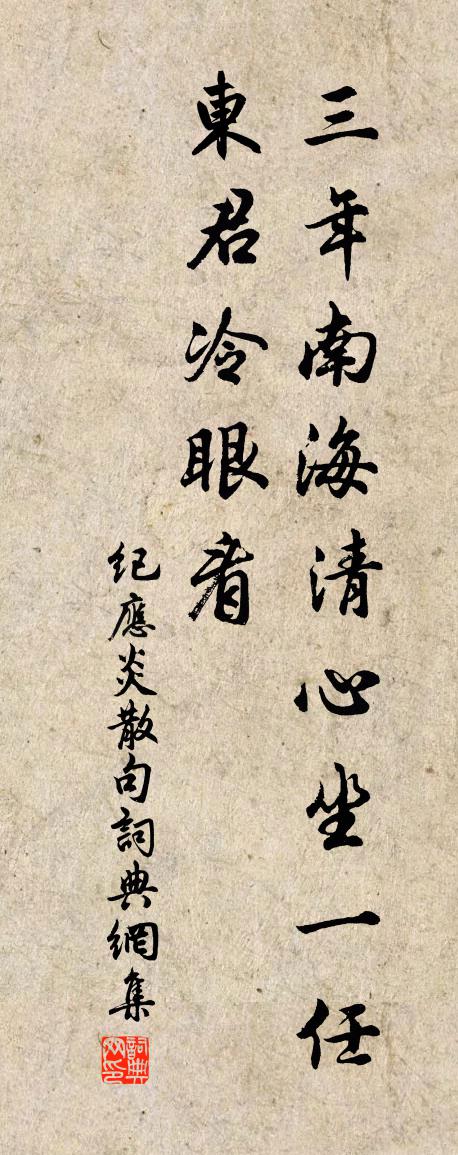 三年南海清心坐一任
東君冷眼看
紀應炎散句詞典網集
詞典网印